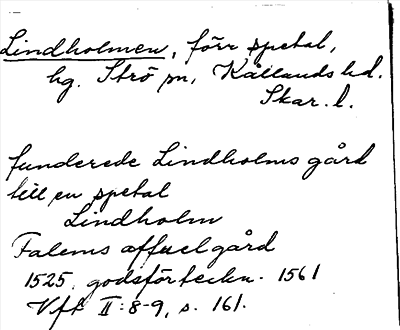 Lindholmen, förr spetal,
hg. Strö sn, Kållands hd.
Skar. l.
funderede Lindholms gård
till en spetal
Lindholm
Falems affuel gård
1525, godsförteckn. 1561
Vft II:8-9, s. 161.